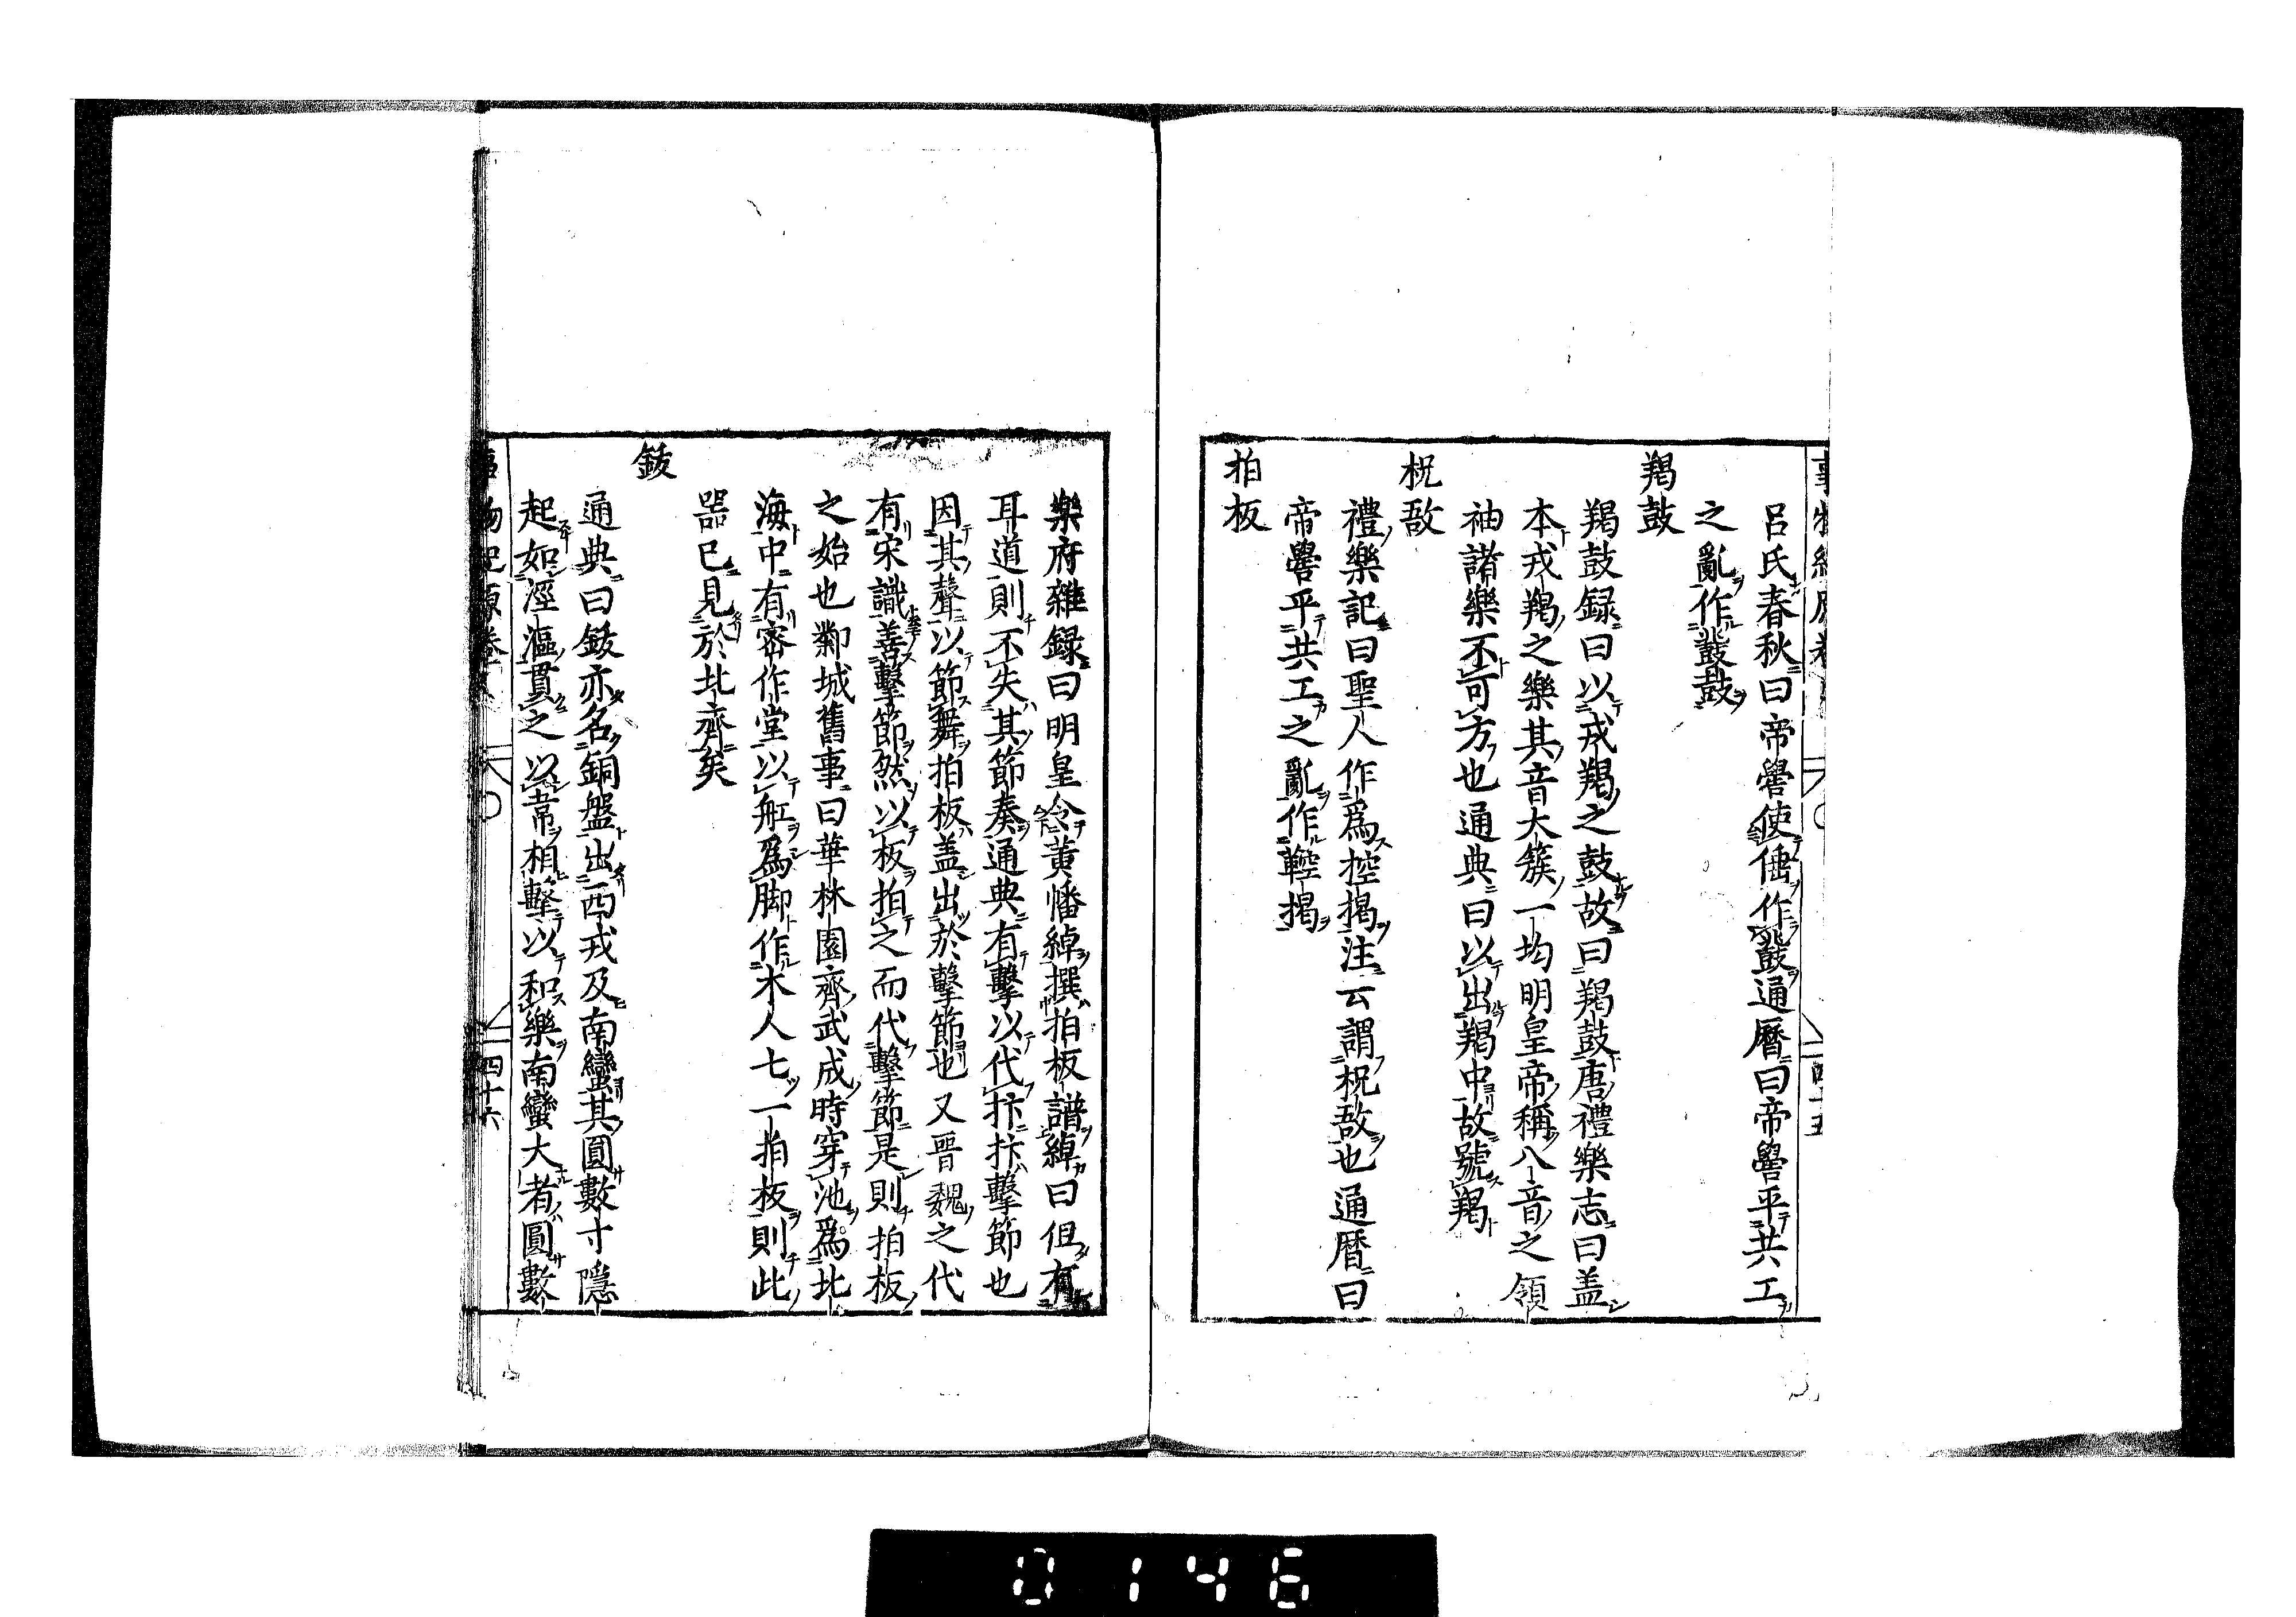 呂氏春秋曰帝嚳使倕作鼗通曆曰帝嚳平共工
之亂作鼗鼓
羯鼓
羯鼓録曰以戎羯之鼓故曰羯鼓唐禮樂志曰盖
本戎羯之樂其音大簇一均明皇帝稱八音之領
袖諸樂不可方也通典曰以出羯中故號羯
柷敔
禮樂記曰聖人作爲控揭注云謂柷敔也通曆曰
帝嚳平共工之亂作鞚揭
拍板
樂府雜録曰明皇令黄幡綽撰拍板譜綽曰但有
耳道則不失其節奏通典有擊以代抃抃擊節也
因其聲以節舞拍板盖出於擊節也又晉魏之代
有宋識善擊節然以板拍之而代擊節是則拍板
之始也鄴城舊事曰華林園齊武成時穿池爲北
海中有密作堂以舡爲脚作木人七一拍板則此
器已見於北齊矣
鈸
通典曰鈸亦名銅盤出西戎及南蠻其圓數寸隱
起如浮漚貫之以韋相擊以和樂南蠻大者圓數
四十六
0146